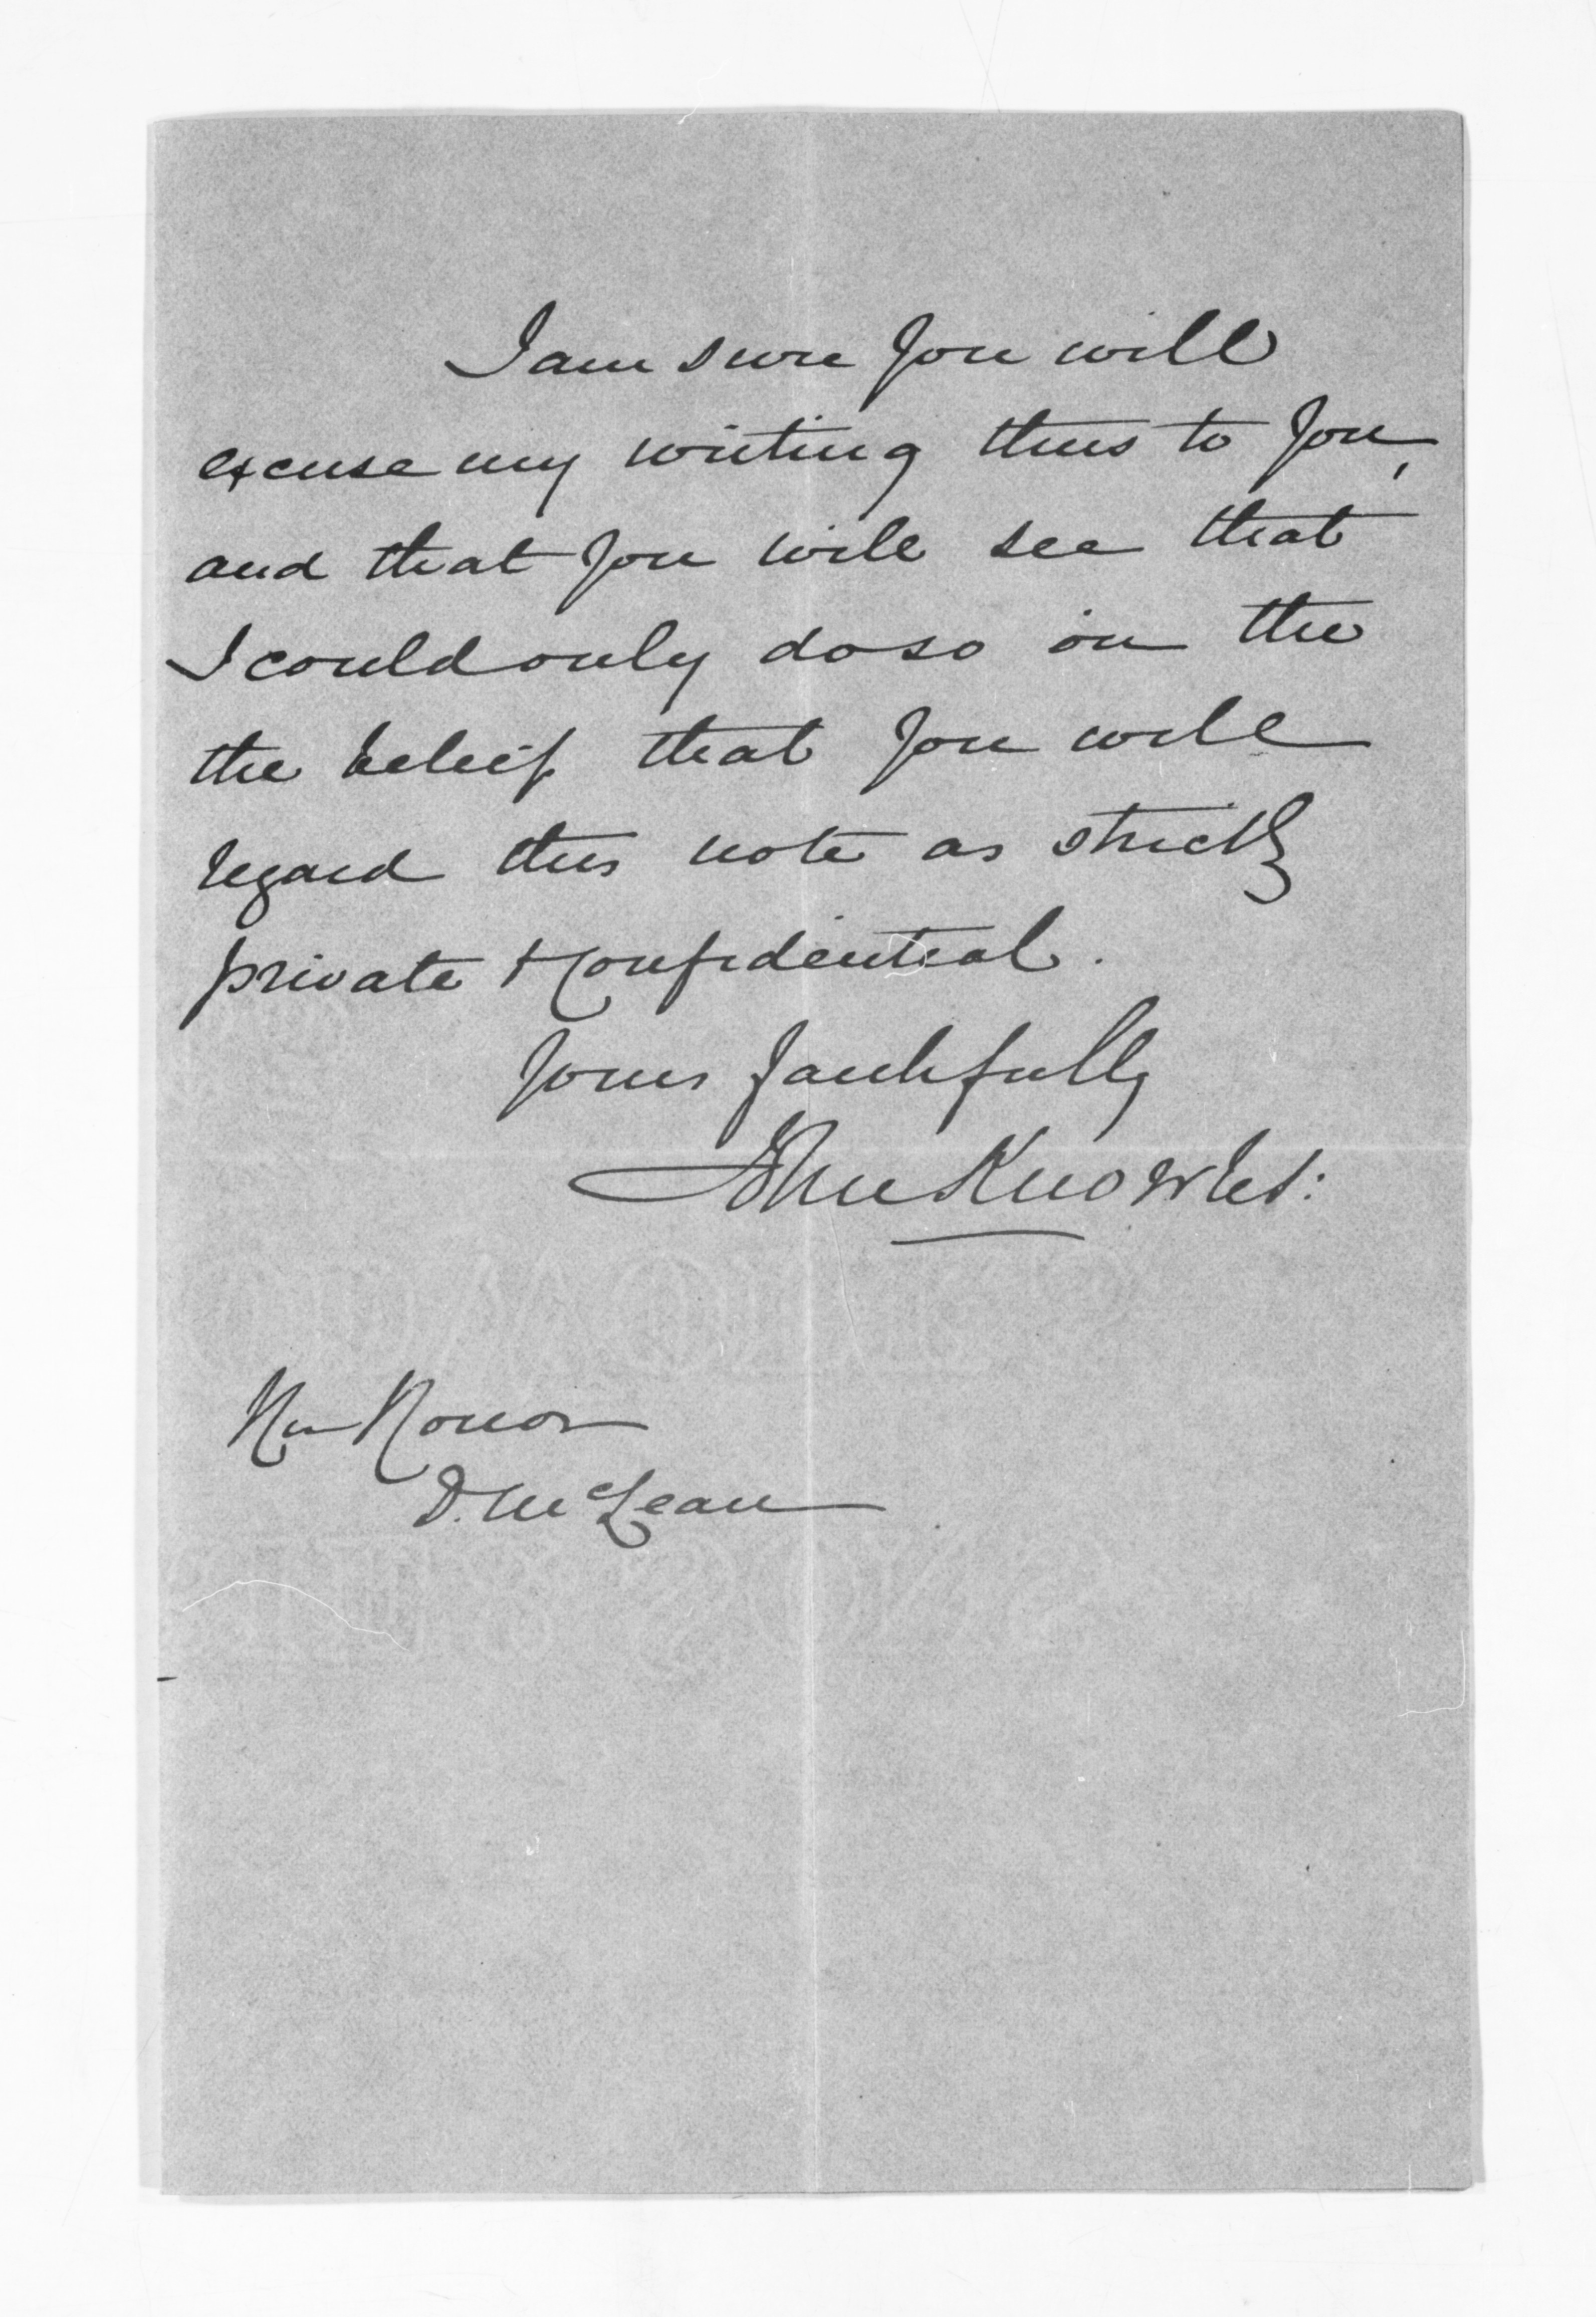 I am sure you will
excuse my writing thus to you,
and that you will see that
I could only do so in the
the beleif that you will
regard this note as strictly
private & confidential.
Yours faithfully
John Knowles:
His Honor
D. McLean